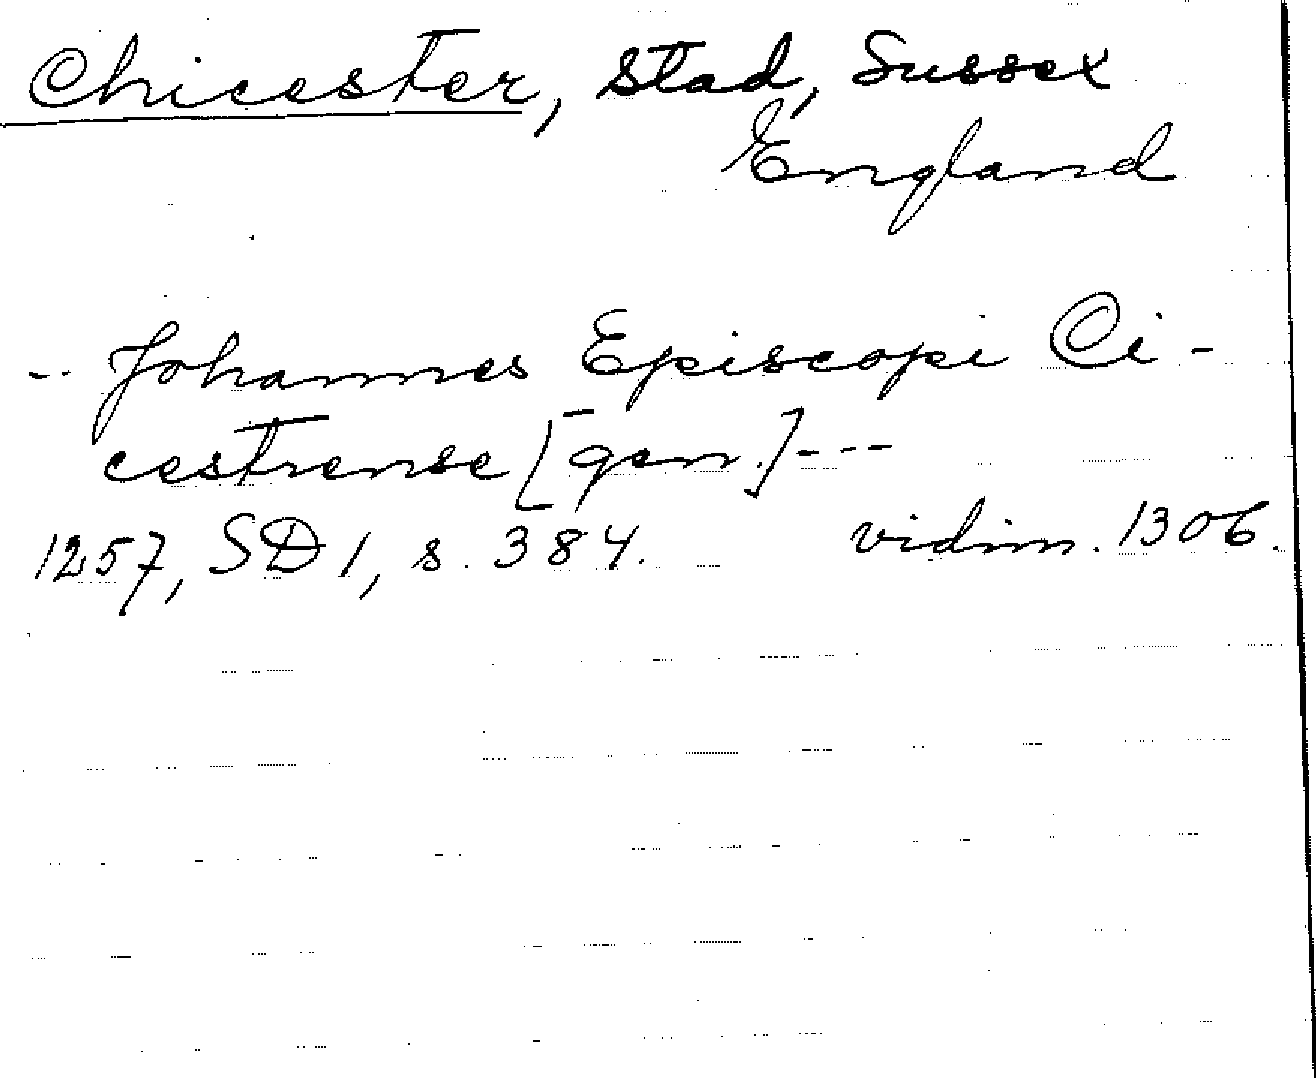 Chicester, Stad, Sussex
England
-- Johannes Episcopi Ci-
cestrense [gen.] ---
1257, SD 1, s. 384. vidim. 1306.